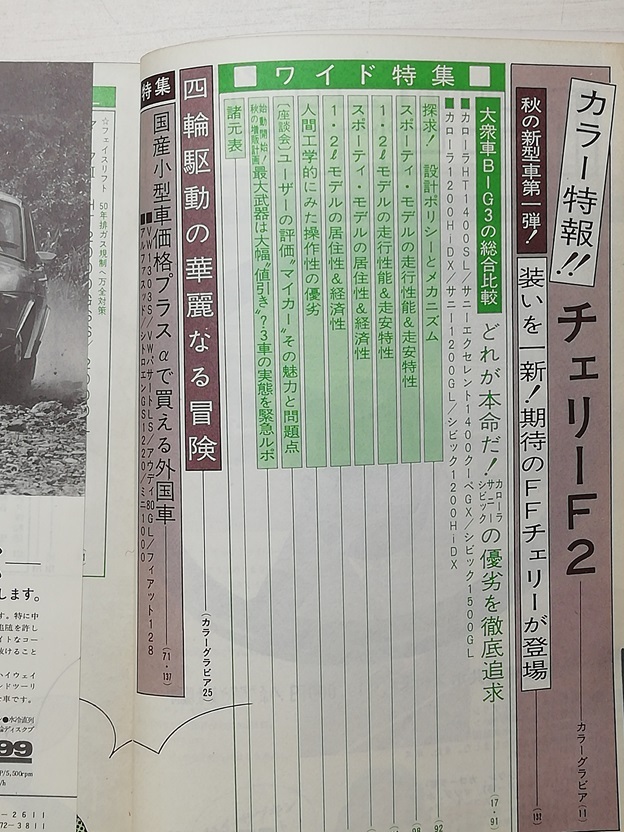 カラー特報!!
チェリーF2
カラーグラビア(11)
秋の新型車第一弾!
装いを一新!期待のFFチェリーが登場
(132)
■ワイド特集■
大衆車BIG3の総合比較
どれが本命だ!
カローラ
サニー
シビック
の優劣を徹底追求
(17・91)
■カローラHT1400SL/サニーエクセレント1400クーペGX/シビック1500GL
■カローラ1200Hi-DX/サニー1200GL/シビック1200Hi-DX
探求! 設計ポリシーとメカニズム
92
スポーティ・モデルの走行性能&走安特性
98
1・2ℓモデルの走行性能&走安特性
スポーティ・モデルの居住性&経済性
1・2ℓモデルの居住性&経済性
人間工学的にみた操作性の優劣
〔座談会〕ユーザーの評価“マイカー”その魅力と問題点
始動開始!
秋の増販計画
最大武器は大幅“値引き”?3車の実態を緊急ルポ
諸元表
四輪駆動の華麗なる冒険
(カラーグラビア25)
特集
国産小型車価格プラスαで買える外国車
(71・137)
■VW1303S/VWパサートLS/アウディ80GL/フィアット128
■アルファスッド/シトロエンGS1220/ミニ1000
☆フェイスリフト 50年排ガス規制へ万全対策
します。
す。特に中
追随を許し
イトなコー
抜けること
ハイウェイ
ンドツーリ
な車です。
●水冷直列
ディスクブ
99
P/5,500rpm
-2611
72-3811